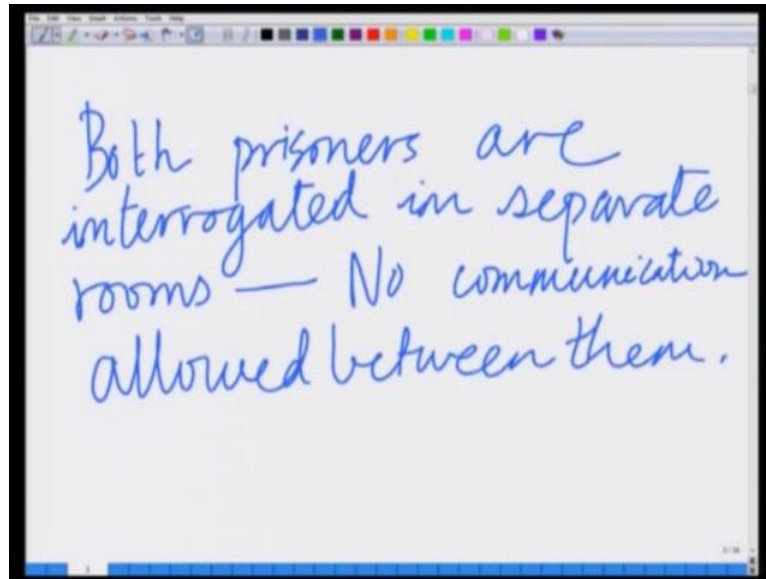 File Edit View Insert Actions Tools Help
Both prisoners are
interrogated in separate
rooms — No communication
allowed between them.